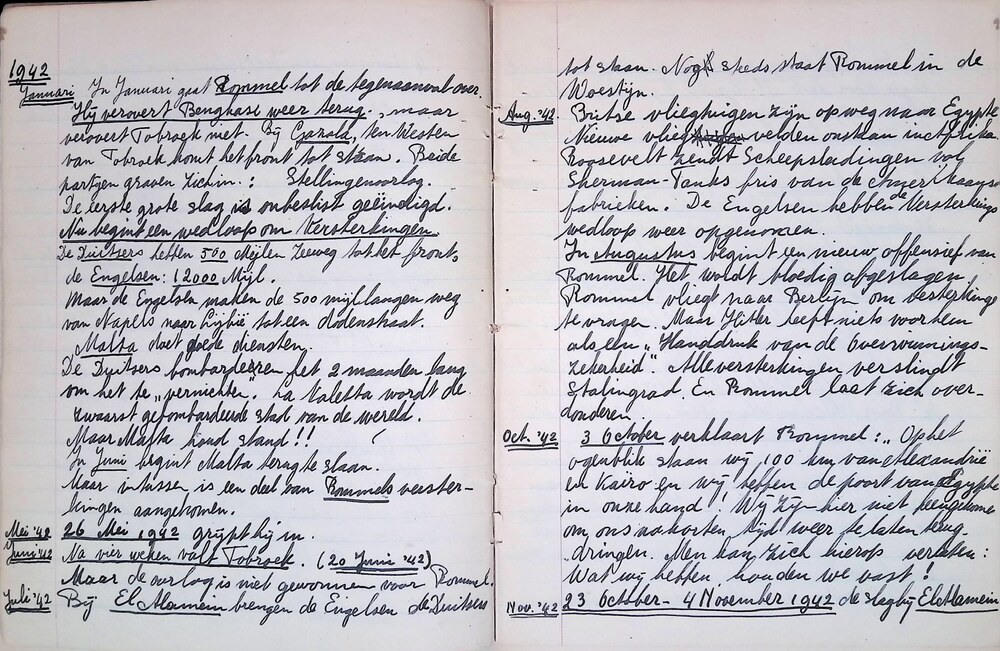 1942
Januari In Januari gaat Rommel tot de tegenaanval over.
Hij verovert Benghasi weer terug, maar
verovert Tobroek niet. Bij Gazala, ten Westen
van Tobroek komt het front tot staan. Beide
partijen graven zich in.: Stellingenoorlog.
De eerste grote slag is onbeslist geëindigd.
Nu begint een wedloop om Versterkingen.
De Duitsers hebben 500 Mijlen Zeeweg tot het front,
de Engelsen: 12000 Mijl.
Maar de Engelsen maken de 500 mijl langen weg
van Napels naar Lybië tot een dodenstraat.
Malta doet goede diensten.
De Duitsers bombarderen het 2 maanden lang
om het te „vernichten". La Valetta wordt de
zwaarst gebombardeerde stad van de wereld.
Maar Malta houd stand!!
In Juni begint Malta terug te slaan.
Maar intussen is een deel van Rommels verster-
kingen aangekomen.
Mei '42 26 Mei 1942 grijpt hij in.
Juni '42 Na vier weken valt Tobroek. (20 Juni '42)
Maar de oorlog is niet gewonnen voor Rommel.
Juli '42 Bij El Alamein brengen de Engelsen de Duitsers
tot staan. Nog steeds staat Rommel in de
Woestijn.
Aug. '42 Britse vliegtuigen zijn op weg naar Egypte
Nieuwe vlieg velden onstaan in Afrika
Roosevelt zendt Scheepsladingen vol
Sherman-Tanks fris van de Amerikaanse
fabrieken. De Engelsen hebben de Versterkings
wedloop weer opgenomen.
In Augustus begint een nieuw offensief van
Rommel. Het wordt bloedig afgeslagen
Rommel vliegt naar Berlijn om versterkinge
te vragen. Maar Hitler heeft niets voor hem
als een „Handdruk van de Overwinnings-
zekerheid". Alle versterkingen verslindt
Stalingrad. En Rommel laat zich over-
donderen.
Oct. '42 3 October verklaart Rommel: „Op het
ogenblik staan wij 100 km van Alexandrië
en Kaïro en wij hebben de poort van Egypte
in onze hand! Wij zijn hier niet heengekomen
om ons na korten tijd weer te laten terug-
dringen. Men kan zich hierop verlaten:
Wat wij hebben, houden we vast!
Nov. '42 23 October - 4 November 1942 de slag bij El Alamein